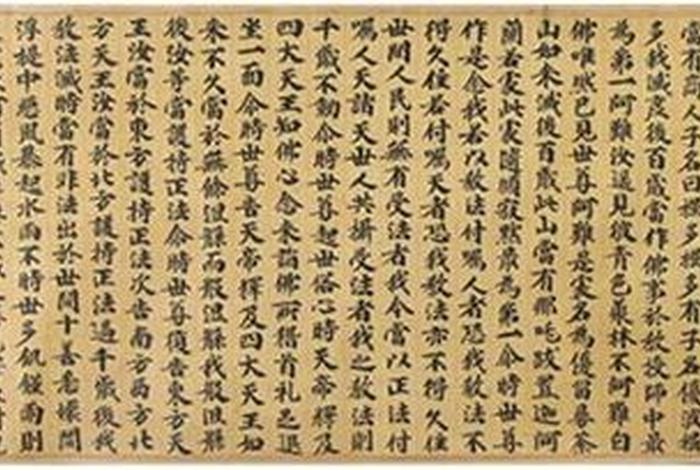 多我滅度後百歲當作佛事於教授師中最
為第一阿難汝遙見彼青色叢林不阿難白
佛唯然已見世尊阿難是處名為優留曼荼
山如来滅後百歲此山當有那吒跋置迦阿
蘭若處此處隨順寂默最為第一尒時世尊
作是念我若以教法付囑人者恐我教法不
得久住若付囑天者恐我教法亦不得久住
世間人民則無有受法者我今當以正法付
囑人天諸天世人共攝受法者我之教法則
千歲不動尒時世尊起世俗心時天帝釋及
四大天王知佛心念来詣佛所稽首礼足退
坐一面尒時世尊告天帝釋及四大天王如
来不久當於無餘涅槃而般涅槃我般涅槃
後汝等當護持正法尒時世尊復告東方天
王汝當於東方護持正法次告南方西方北
方天王汝當於北方護持正法過千歲後我
教法滅時當有非法出於世間十善悉壞閻
浮提中惡風暴起水雨不時世多飢饉雨則